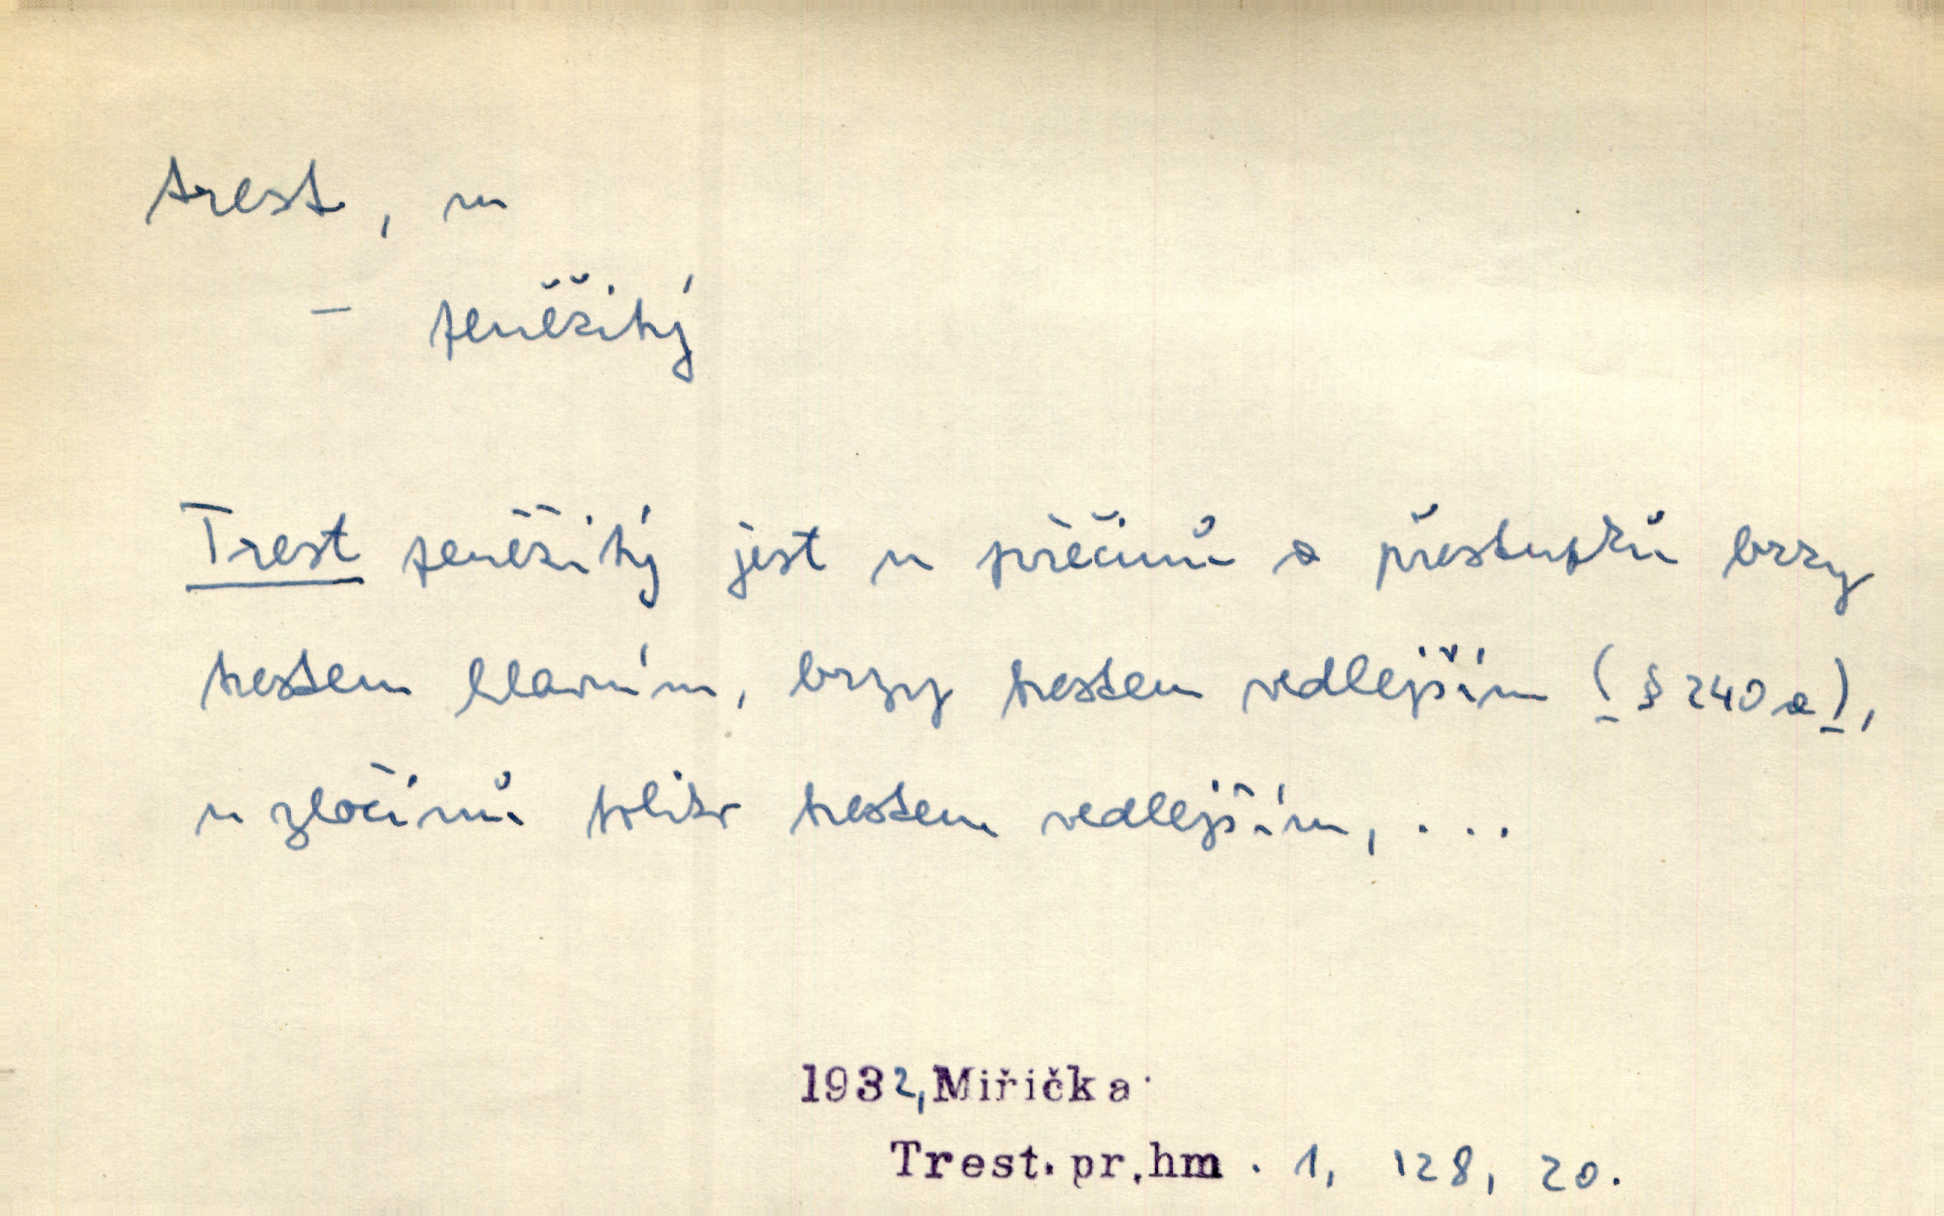 trest, m
– peněžitý
Trest peněžitý jest u přečinů a přestupků brzy
trestem hlavním, brzy trestem vedlejším (§ 240 a),
u zločinů toliko trestem vedlejším, ...
1932, Miřička
Trest. pr. hm. 1, 128, 20.